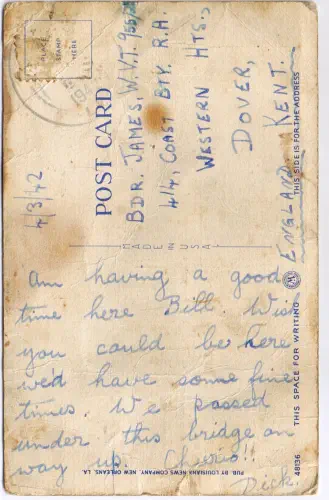 PLACE
STAMP
HERE
POST CARD
BDR. JAMES W.V.T.
4/4, COAST BTY. R.A.
WESTERN HTS.,
DOVER,
KENT.
ENGLAND.
THIS SIDE IS FOR THE ADDRESS
4/3/42
MADE IN U.S.A.
Am having a good
time here Bill Wish
you could be here
we'd have some fine
times. We passed
under this bridge on
way up. Cheerio!!
Dick.
THIS SPACE FOR WRITING
48136
PUB. BY LOUISIANA NEWS COMPANY, NEW ORLEANS, LA.